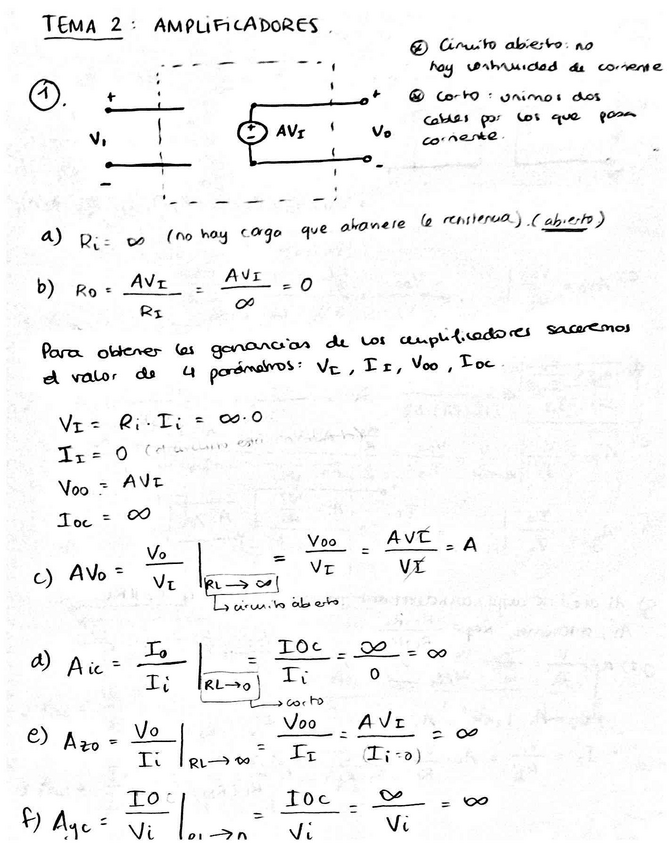 TEMA 2: AMPLIFICADORES.
⊗ Circuito abierto: no
hay continuidad de corriente
⊗ Corto: unimos dos
cables por los que pasa
corriente.
①.
+
V₁
-
+
-
AVI
+
Vo
-
a) Ri = ∞ (no hay carga que atraviese la resistencia). (abierto)
b) Ro = AVI / RI = AVI / ∞ = 0
Para obtener las ganancias de los amplificadores sacaremos
el valor de 4 parámetros: VI, II, Voo, Ioc.
VI = Ri · Ii = ∞·0
II = 0
Voo = AVI
Ioc = ∞
c) AVo = Vo / VI | RL → ∞ = Voo / VI = AVI / VI = A
↳ circuito abierto
d) Aic = Io / Ii | RL→0 = IOC / Ii = ∞ / 0 = ∞
→ corto
e) Azo = Vo / Ii | RL → ∞ = Voo / II = AVI / (Ii=0) = ∞
f) Ayc = IOC / Vi | RL→0 = IOC / Vi = ∞ / Vi = ∞